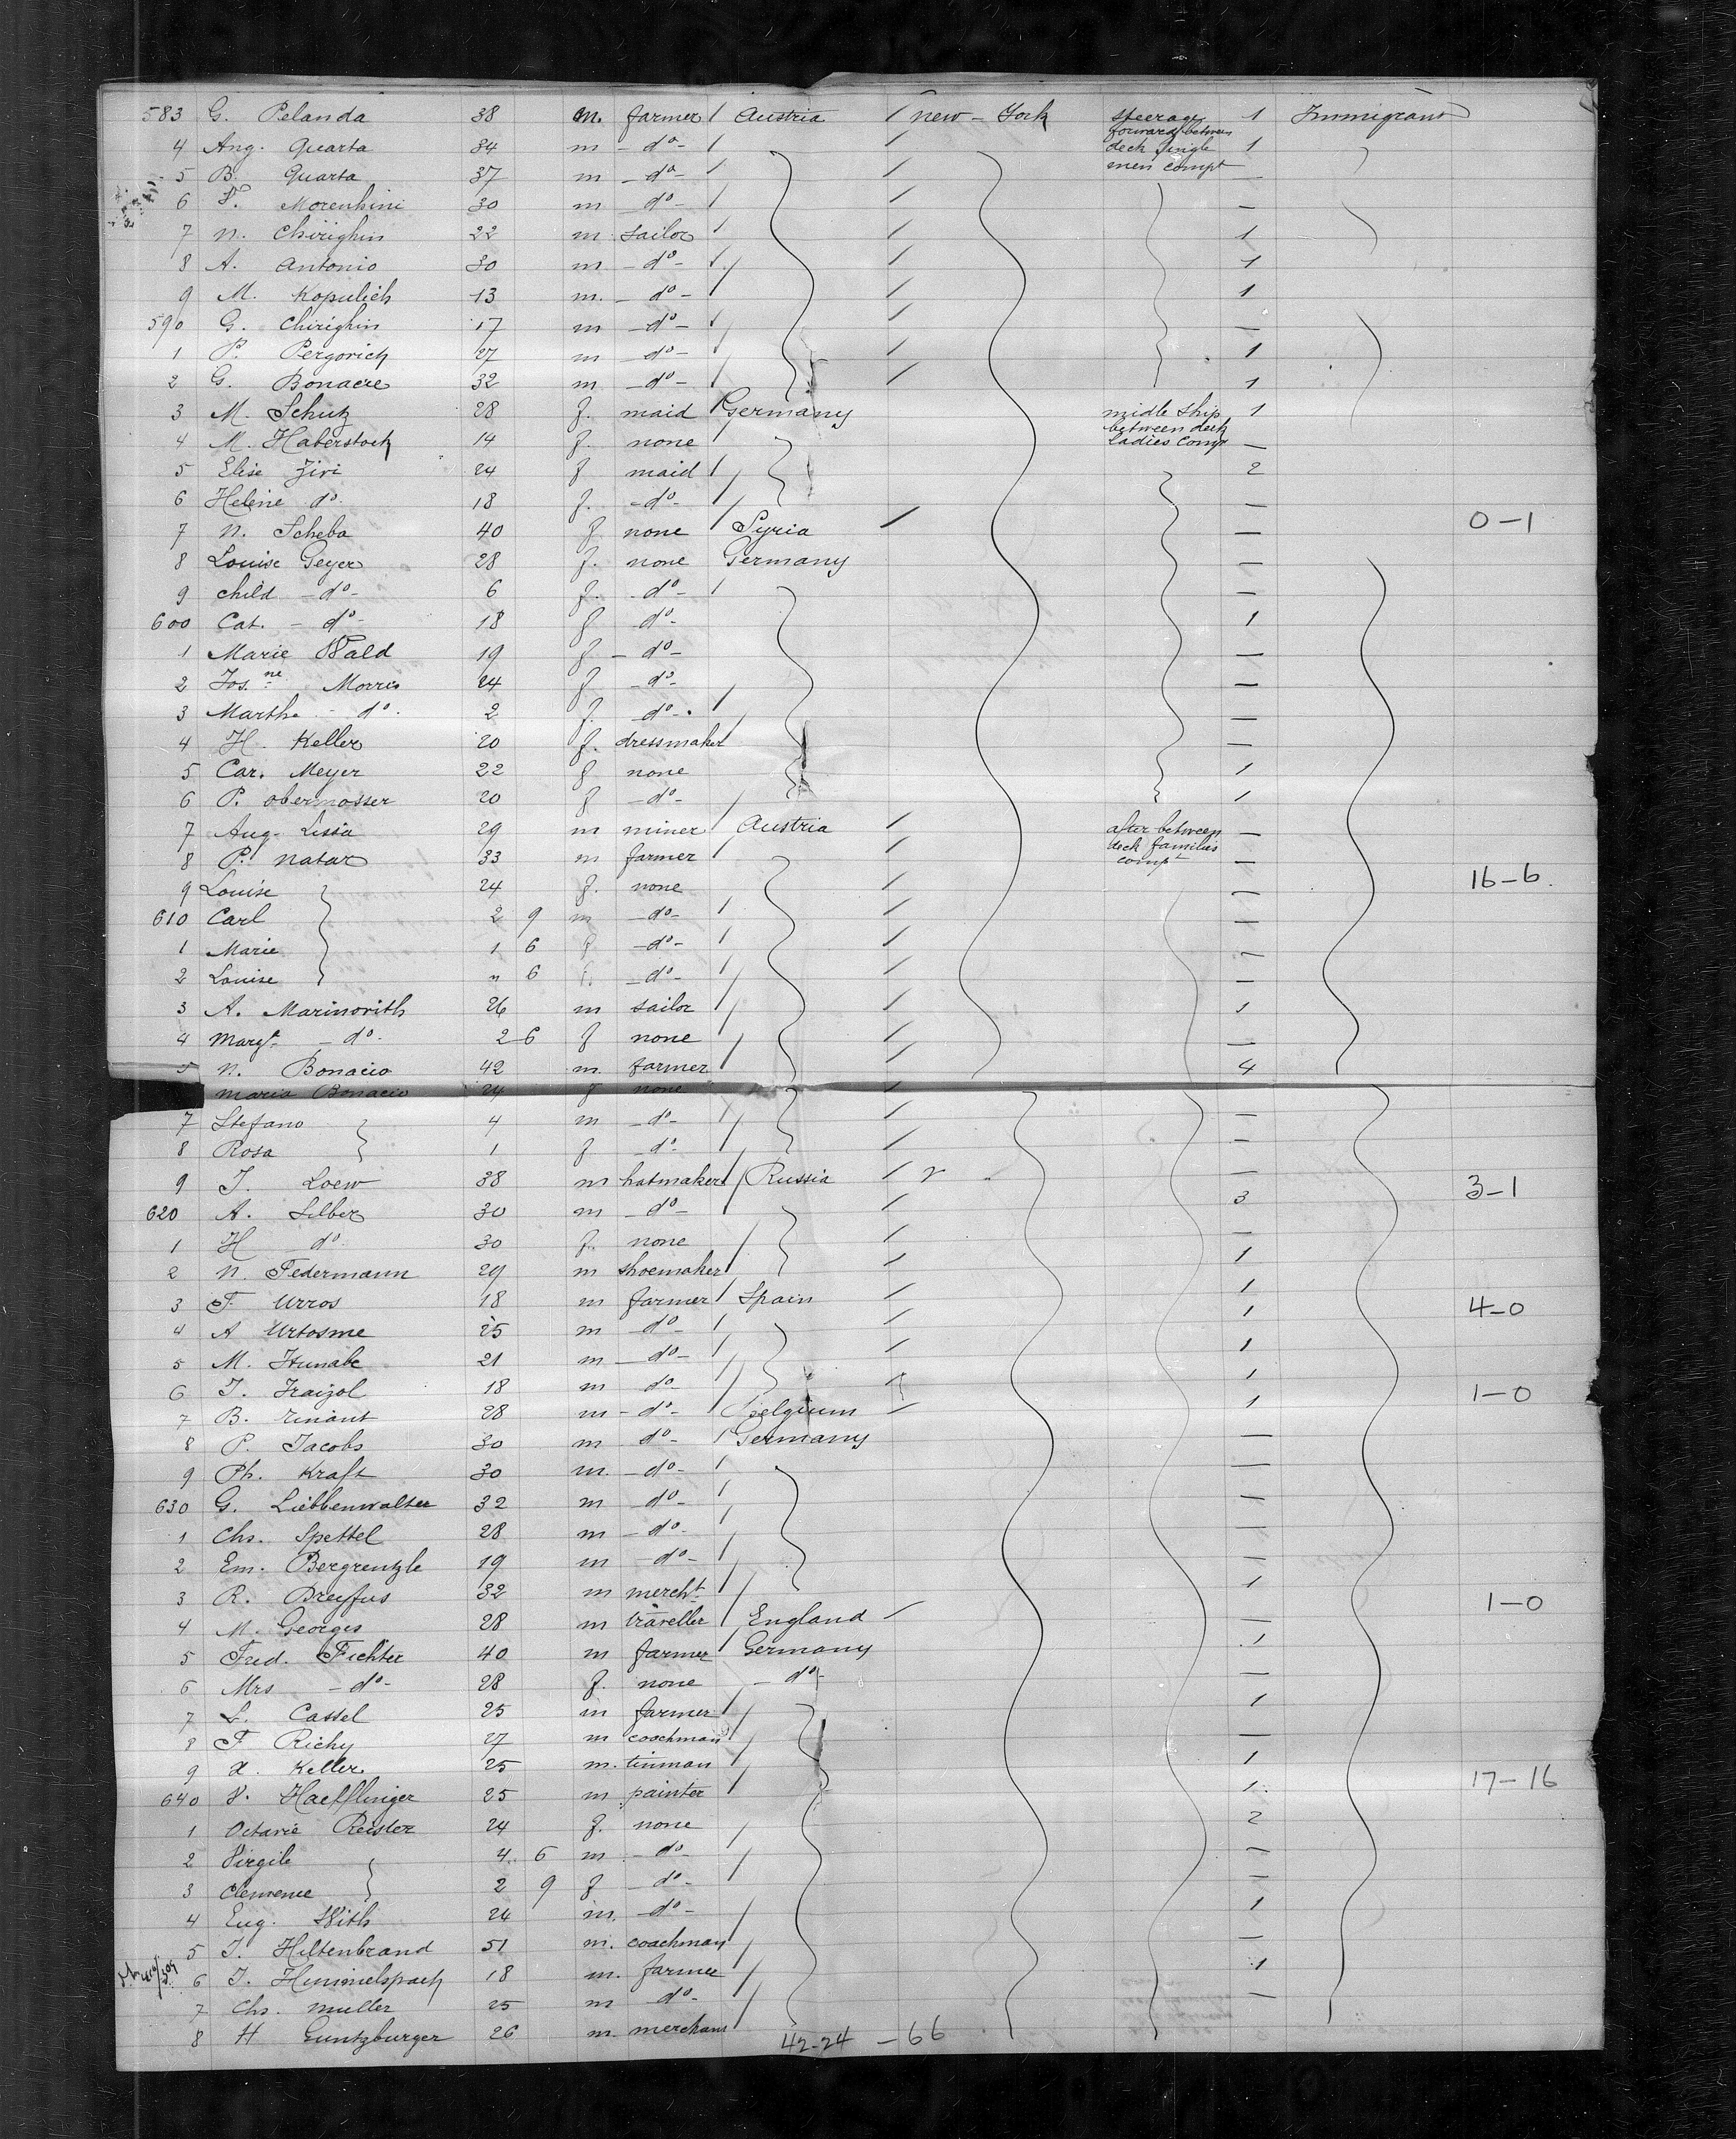 583 G. Pelanda 38 m. farmer Austria new-York steerage 1 Immigrans
forward between
4 Ang. Quarta 34 m -do- deck single 1
5 B. Quarta 37 m -do- men compt —
6 F. Morenhini 30 m -do- —
7 N. Chirighin 22 m sailor 1
8 A. Antonio 30 m -do- 1
9 M. Kopulich 13 m. -do- 1
590 G. Chirighin 17 m -do- —
1 P. Pergorich 27 m -do- 1
2 G. Bonacre 32 m -do- 1
3 M. Schutz 28 f. maid Germany midle ship 1
between deck
4 M. Haberstock 14 f. none ladies compt —
5 Elise Jiri 24 f maid 2
6 Helene do. 18 f. -do- —
7 N. Scheba 40 f none Syria — 0-1
8 Louise Geyer 28 f. none Germany —
9 child -do- 6 f. -do- —
600 Cat. -do- 18 f -do- 1
1 Marie Wald 19 f -do- —
2 Jos.ne Morris 24 f -do- —
3 Marthe do. 2 f. -do- —
4 H. Keller 20 f. dressmaker —
5 Car. Meyer 22 f none 1
6 P. obermosser 20 f -do- 1
7 Aug. Lissa 29 m miner Austria after between —
deck families
8 P. Natar 33 m farmer compt —
9 Louise 24 f. none — 16-6.
610 Carl 2 9 m -do- —
1 Marie 1 6 f -do- —
2 Louise " 6 f. -do- —
3 A. Marinovith 26 m sailor 1
4 Margt -do- 2 6 f none —
5 N. Bonacio 42 m. farmer 4
Maria Bonacio 24 f none
7 Stefano 4 m -do- —
8 Rosa 1 f -do- —
9 J. Loew 38 m hatmaker Russia — 3-1
620 A. Silber 30 m -do- 3
1 H do 30 f. none —
2 N. Federmann 29 m shoemaker 1
3 F. Urros 18 m farmer Spain 1 4-0
4 A Urtosme 25 m -do- 1
5 M. Itunabe 21 m -do- 1
6 J. Iraizol 18 m do- 1
7 B. Rinant 28 m -do- Belgium 1 1-0
8 P. Jacobs 30 m do- Germany —
9 Ph. Kraft 30 m. -do- —
630 G. Liebbenwalter 32 m -do- —
1 Chs. Spettel 28 m -do- —
2 Em. Bergrentzle 19 m -do- —
3 R. Dreyfus 32 m mercht 1
4 M. Georges 28 m traveller England — 1-0
5 Fred. Fichter 40 m farmer Germany 1
6 Mrs -do- 28 f. none -do- —
7 L. Cassel 25 m farmer 1
8 F Richy 27 m coachman —
9 X. Keller 25 m. tinman 1
640 V. Haefflinger 25 m painter 1 17-16
1 Octavie Reister 24 f. none 2
2 Virgile 4 6 m -do- —
3 Clemence 2 9 f -do- —
4 Eug. With 24 m. -do- 1
5 J. Hiltenbrand 51 m. coachman —
6 J. Himmelspach 18 m. farmer 1
7 Chs. Muller 25 m -do- —
8 H Guntzburger 26 m. merchans 42-24 -66